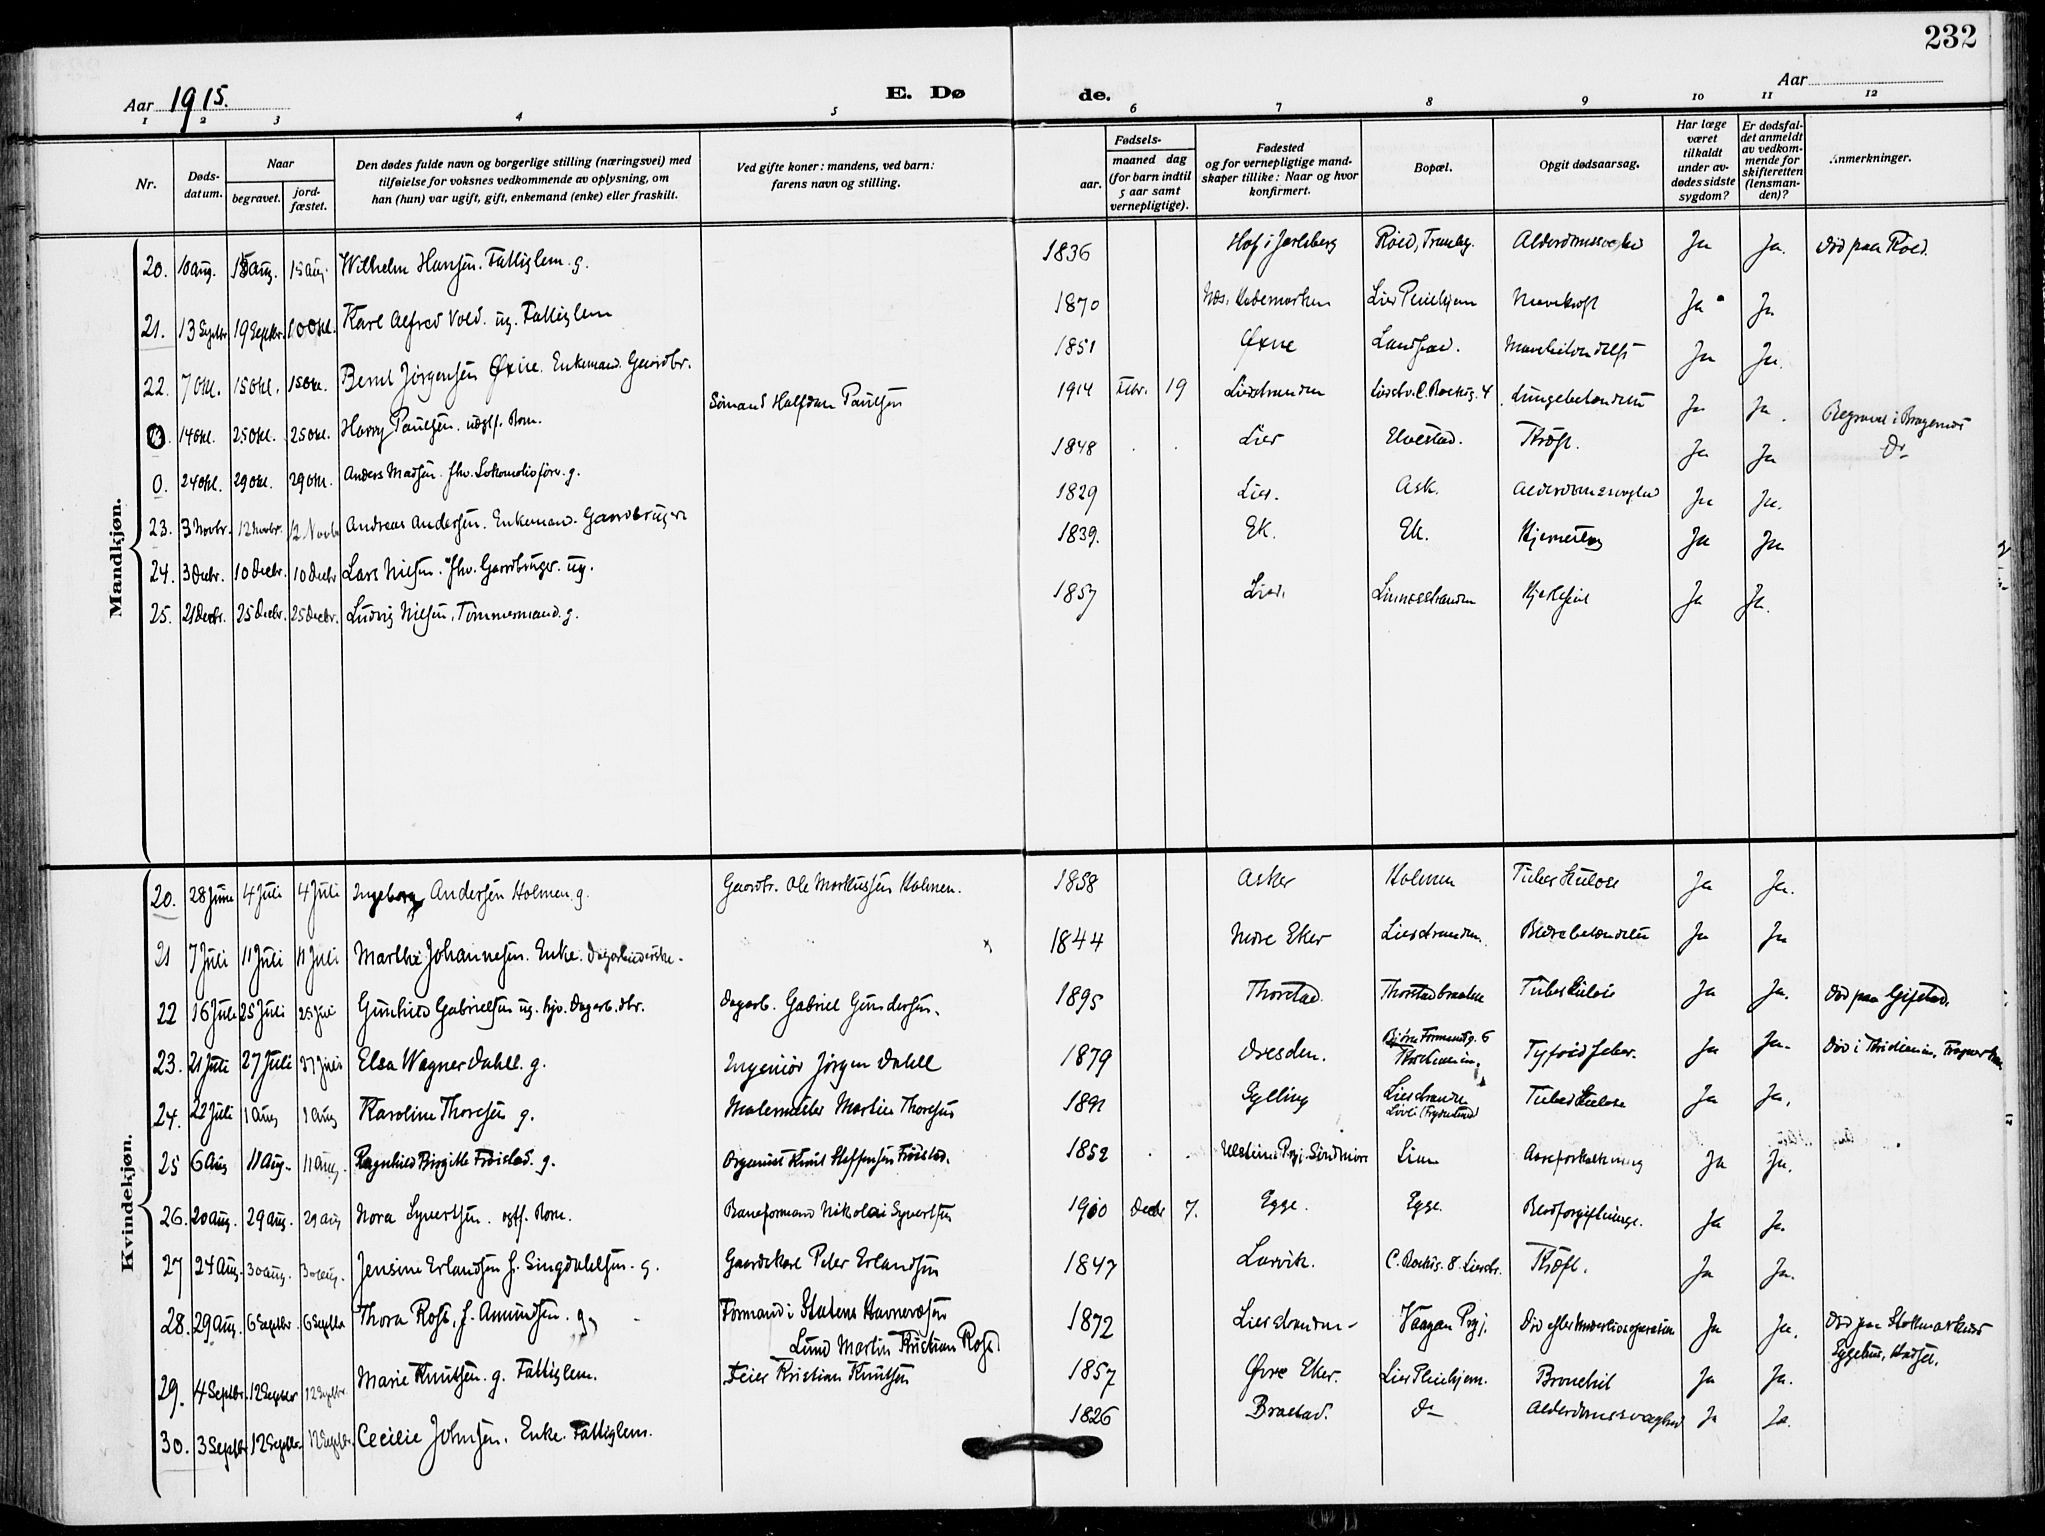 232
Aar 1915.
E. Dø de.
Aar
1 2 3 4 5 6 7 8 9 10 11 12
Nr.
Døds-
datum.
Naar
begravet.
jord-
fæstet.
Den dødes fulde navn og borgerlige stilling (næringsvei) med
tilføielse for voksnes vedkommende av oplysning, om
han (hun) var ugift, gift, enkemand (enke) eller fraskilt.
Ved gifte koner: mandens, ved barn:
farens navn og stilling.
Fødsels-
aar.
maaned dag
(for barn indtil
5 aar samt
vernepligtige).
Fødested
og for vernepligtige mand-
skaper tillike: Naar og hvor
konfirmert.
Bopæl.
Opgit dødsaarsag.
Har læge
været
tilkaldt
under av-
dødes sidste
sygdom?
Er dødsfal-
det anmeldt
av vedkom-
mende for
skifteretten
(lensman-
den)?
Anmerkninger.
Mandkjøn.
20. 10 aug. 15 aug. 15 aug. Wilhelm Hansen. Fattiglem. g. 1836 Hof i Jarlsberg Røed, Tranby. Alderdomssvaghed Ja Ja. Død paa Røed.
21. 13 Septbr 19 Septbr. 10 Okt. Karl Alfred Vold. ug. Fattiglem 1870 Næs, Hedemarken Lier Pleiehjem Mavekræft Ja Ja
22. 7 Okt. 15 Okt. 15 Okt. Bernt Jørgensen Øxne. Enkemand. Gaardbr. 1851 Øxne Landfald. Ja Ja.
14 Okt. 25 Okt. 25 Okt. Harry Paulsen. uægtf. Barn. Sømand Halfdan Paulsen 1914 Febr. 19 Lierstranden Lungebetændelse Ja Ja. Begravet i Bragernes
0. 24 Okt. 29 Okt. 29 Okt. Anders Madsen. fhv. Lokomotivfører. g. 1848 Lier Elvestad. Kræft. Ja Ja Do
23. 3 Novbr. 12 Novbr. 12 Novbr Andreas Andersen. Enkemand. Gaardbruger 1829 Lier. Ask. Alderdomssvaghed Ja Ja.
24. 3 Decbr. 10 Decbr. 10 Decbr Lars Nilsen. fhv. Gaardbruger. ug. 1839. Ek. Ek. Ja Ja
25. 21 Decbr. 25 Decbr. 25 Decbr. Ludvig Nilsen, Tømmermand. g. 1857 Lier. Linnesstranden Hjertefeil Ja Ja.
Kvindekjøn.
20. 28 Juni 4 Juli 4 Juli Ingeborg Andersen Holmen. g. Gaardbr. Ole Markussen Holmen. 1858 Asker Holmen Tuberkulose Ja Ja.
21 7 Juli 11 Juli 11 Juli Marthe Johannesen. Enke. Dagarbeiderske. 1844 Nedre Eker Lierstranden. Blærebetændelse Ja Ja
22 16 Juli 25 Juli 25 Juli Gunhild Gabrielsen ug. hjv. Dagarb. dtr. Dagarb. Gabriel Gundersen. 1895 Thorstad. Thorstadbraaten Tuberkulose Ja Ja. Død paa Gifstad.
23. 21 Juli 27 Juli 27 Juli Elsa Wagner Dahll. g. Ingeniør Jørgen Dahll 1879 Dresden. Bjørn Farmandsg. 6
Kristiania. Tyfoidfeber. Ja Ja. Død i Kristiania,
24. 22 Juli 1 Aug 1 Aug Karoline Thoresen g. Malermester Martin Thoresen 1891 Gylling Lierstranden Tuberkulose Ja Ja.
25 6 Aug 11 Aug. 11 Aug. Ragnhild Birgitte Frøislad. g. Organist Knut Steffensen Frøislad. 1852 Lian Aareforkalkning Ja Ja.
26. 20 Aug. 29 Aug. 29 Aug Nora Syvertsen. egtf. Barn. Baneformand Nikolai Syvertsen 1910 Decbr 7. Egge. Egge. Blodforgiftninge. Ja Ja.
27 24 Aug. 30 Aug. 30 Aug. Jensine Erlandsen f. Singdahlsen. g. Gaardskarl Peter Erlandsen 1847 Larvik. Kræft. Ja Ja.
28. 29 Aug. 6 Septbr. 6 Septbr Thora Rost, f. Amundsen. g. Formand i Statens Havnevæsen
Lund Martin Kristian Rost 1872 Lierstranden Vaagan Prgj. Død efter Underlivsoperation Ja Ja. Død paa Stokmarknes
Sygehus, Hadsel.
29. 4 Septbr. 12 Septbr 12 Septbr. Marie Knutsen. g. Fattiglem. Feier Kristian Knutsen 1857 Øvre Eker. Lier Pleiehjem. Bronchit Ja Ja.
30. 3 Septbr 12 Septbr. 12 Septbr. Cecilie Johnsen. Enke. Fattiglem. 1826 Brastad. Do Alderdomssvaghed Ja Ja.